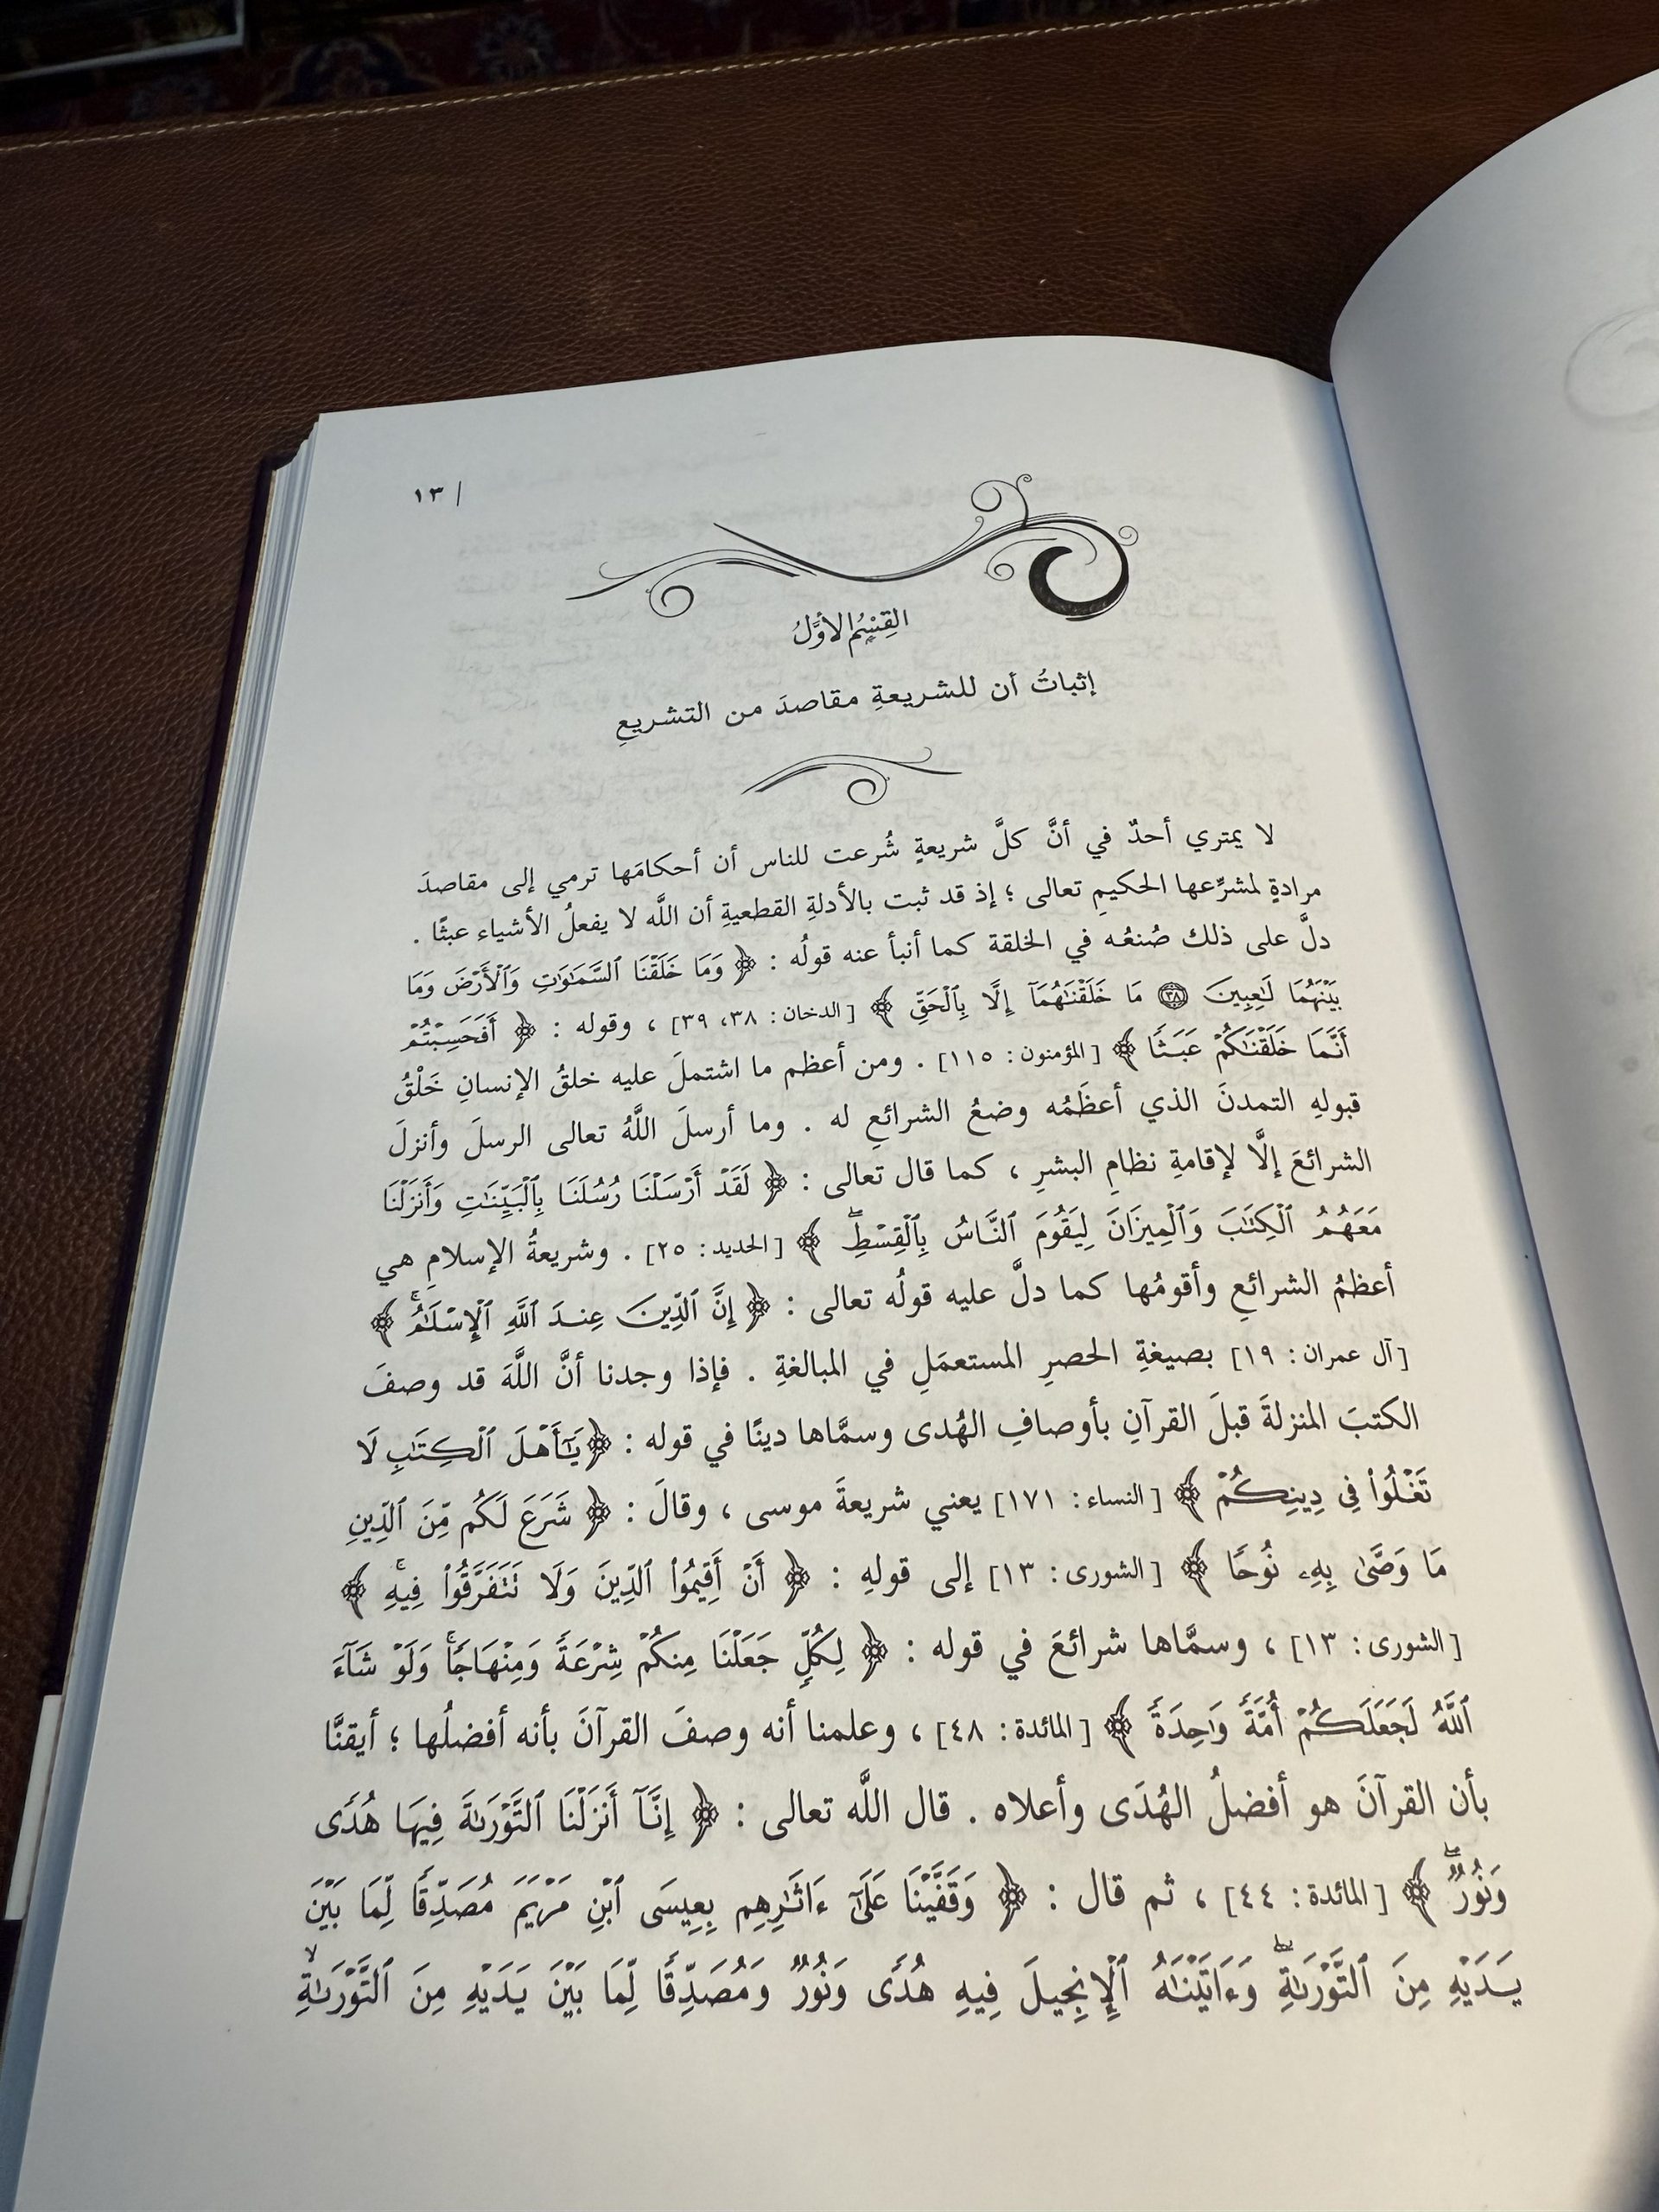 / ١٣
القِسْمُ الأوَّلُ
إثباتُ أن للشريعةِ مقاصدَ من التشريعِ
لا يمتري أحدٌ في أنَّ كلَّ شريعةٍ شُرعت للناس أن أحكامَها ترمي إلى مقاصدَ
مرادةٍ لمشرِّعها الحكيمِ تعالى ؛ إذ قد ثبت بالأدلةِ القطعيةِ أن اللَّه لا يفعلُ الأشياء عبثًا .
دلَّ على ذلك صُنعُه في الخلقة كما أنبأ عنه قولُه : ﴿ وَمَا خَلَقْنَا ٱلسَّمَٰوَٰتِ وَٱلْأَرْضَ وَمَا
بَيْنَهُمَا لَٰعِبِينَ ۝٣٨ مَا خَلَقْنَٰهُمَآ إِلَّا بِٱلْحَقِّ ﴾ [الدخان: ٣٨، ٣٩] ، وقوله : ﴿ أَفَحَسِبْتُمْ
أَنَّمَا خَلَقْنَٰكُمْ عَبَثًا ﴾ [المؤمنون: ١١٥] . ومن أعظم ما اشتملَ عليه خلقُ الإنسانِ خَلْقُ
قبولهِ التمدنَ الذي أعظَمُه وضعُ الشرائعِ له . وما أرسلَ اللَّهُ تعالى الرسلَ وأنزلَ
الشرائعَ إلَّا لإقامةِ نظامِ البشرِ ، كما قال تعالى : ﴿ لَقَدْ أَرْسَلْنَا رُسُلَنَا بِٱلْبَيِّنَٰتِ وَأَنزَلْنَا
مَعَهُمُ ٱلْكِتَٰبَ وَٱلْمِيزَانَ لِيَقُومَ ٱلنَّاسُ بِٱلْقِسْطِ ۖ ﴾ [الحديد: ٢٥] . وشريعةُ الإسلامِ هي
أعظمُ الشرائعِ وأقومُها كما دلَّ عليه قولُه تعالى : ﴿ إِنَّ ٱلدِّينَ عِندَ ٱللَّهِ ٱلْإِسْلَٰمُ ۗ ﴾
[آل عمران: ١٩] بصيغةِ الحصرِ المستعمَلِ في المبالغةِ . فإذا وجدنا أنَّ اللَّهَ قد وصفَ
الكتبَ المنزلةَ قبلَ القرآنِ بأوصافِ الهُدى وسمَّاها دينًا في قوله : ﴿يَٰٓأَهْلَ ٱلْكِتَٰبِ لَا
تَغْلُوا۟ فِى دِينِكُمْ ﴾ [النساء: ١٧١] يعني شريعةَ موسى ، وقالَ : ﴿ شَرَعَ لَكُم مِّنَ ٱلدِّينِ
مَا وَصَّىٰ بِهِۦ نُوحًا ﴾ [الشورى: ١٣] إلى قولهِ : ﴿ أَنْ أَقِيمُوا۟ ٱلدِّينَ وَلَا تَتَفَرَّقُوا۟ فِيهِ ۚ ﴾
[الشورى: ١٣] ، وسمَّاها شرائعَ في قوله : ﴿ لِكُلٍّ جَعَلْنَا مِنكُمْ شِرْعَةً وَمِنْهَاجًا ۚ وَلَوْ شَآءَ
ٱللَّهُ لَجَعَلَكُمْ أُمَّةً وَٰحِدَةً ﴾ [المائدة: ٤٨] ، وعلمنا أنه وصفَ القرآنَ بأنه أفضلُها ؛ أيقنَّا
بأن القرآنَ هو أفضلُ الهُدَى وأعلاه . قال اللَّه تعالى : ﴿ إِنَّآ أَنزَلْنَا ٱلتَّوْرَىٰةَ فِيهَا هُدًى
وَنُورٌ ۖ ﴾ [المائدة: ٤٤] ، ثم قال : ﴿ وَقَفَّيْنَا عَلَىٰٓ ءَاثَٰرِهِم بِعِيسَى ٱبْنِ مَرْيَمَ مُصَدِّقًا لِّمَا بَيْنَ
يَدَيْهِ مِنَ ٱلتَّوْرَىٰةِ ۖ وَءَاتَيْنَٰهُ ٱلْإِنجِيلَ فِيهِ هُدًى وَنُورٌ وَمُصَدِّقًا لِّمَا بَيْنَ يَدَيْهِ مِنَ ٱلتَّوْرَىٰةِ ۙ